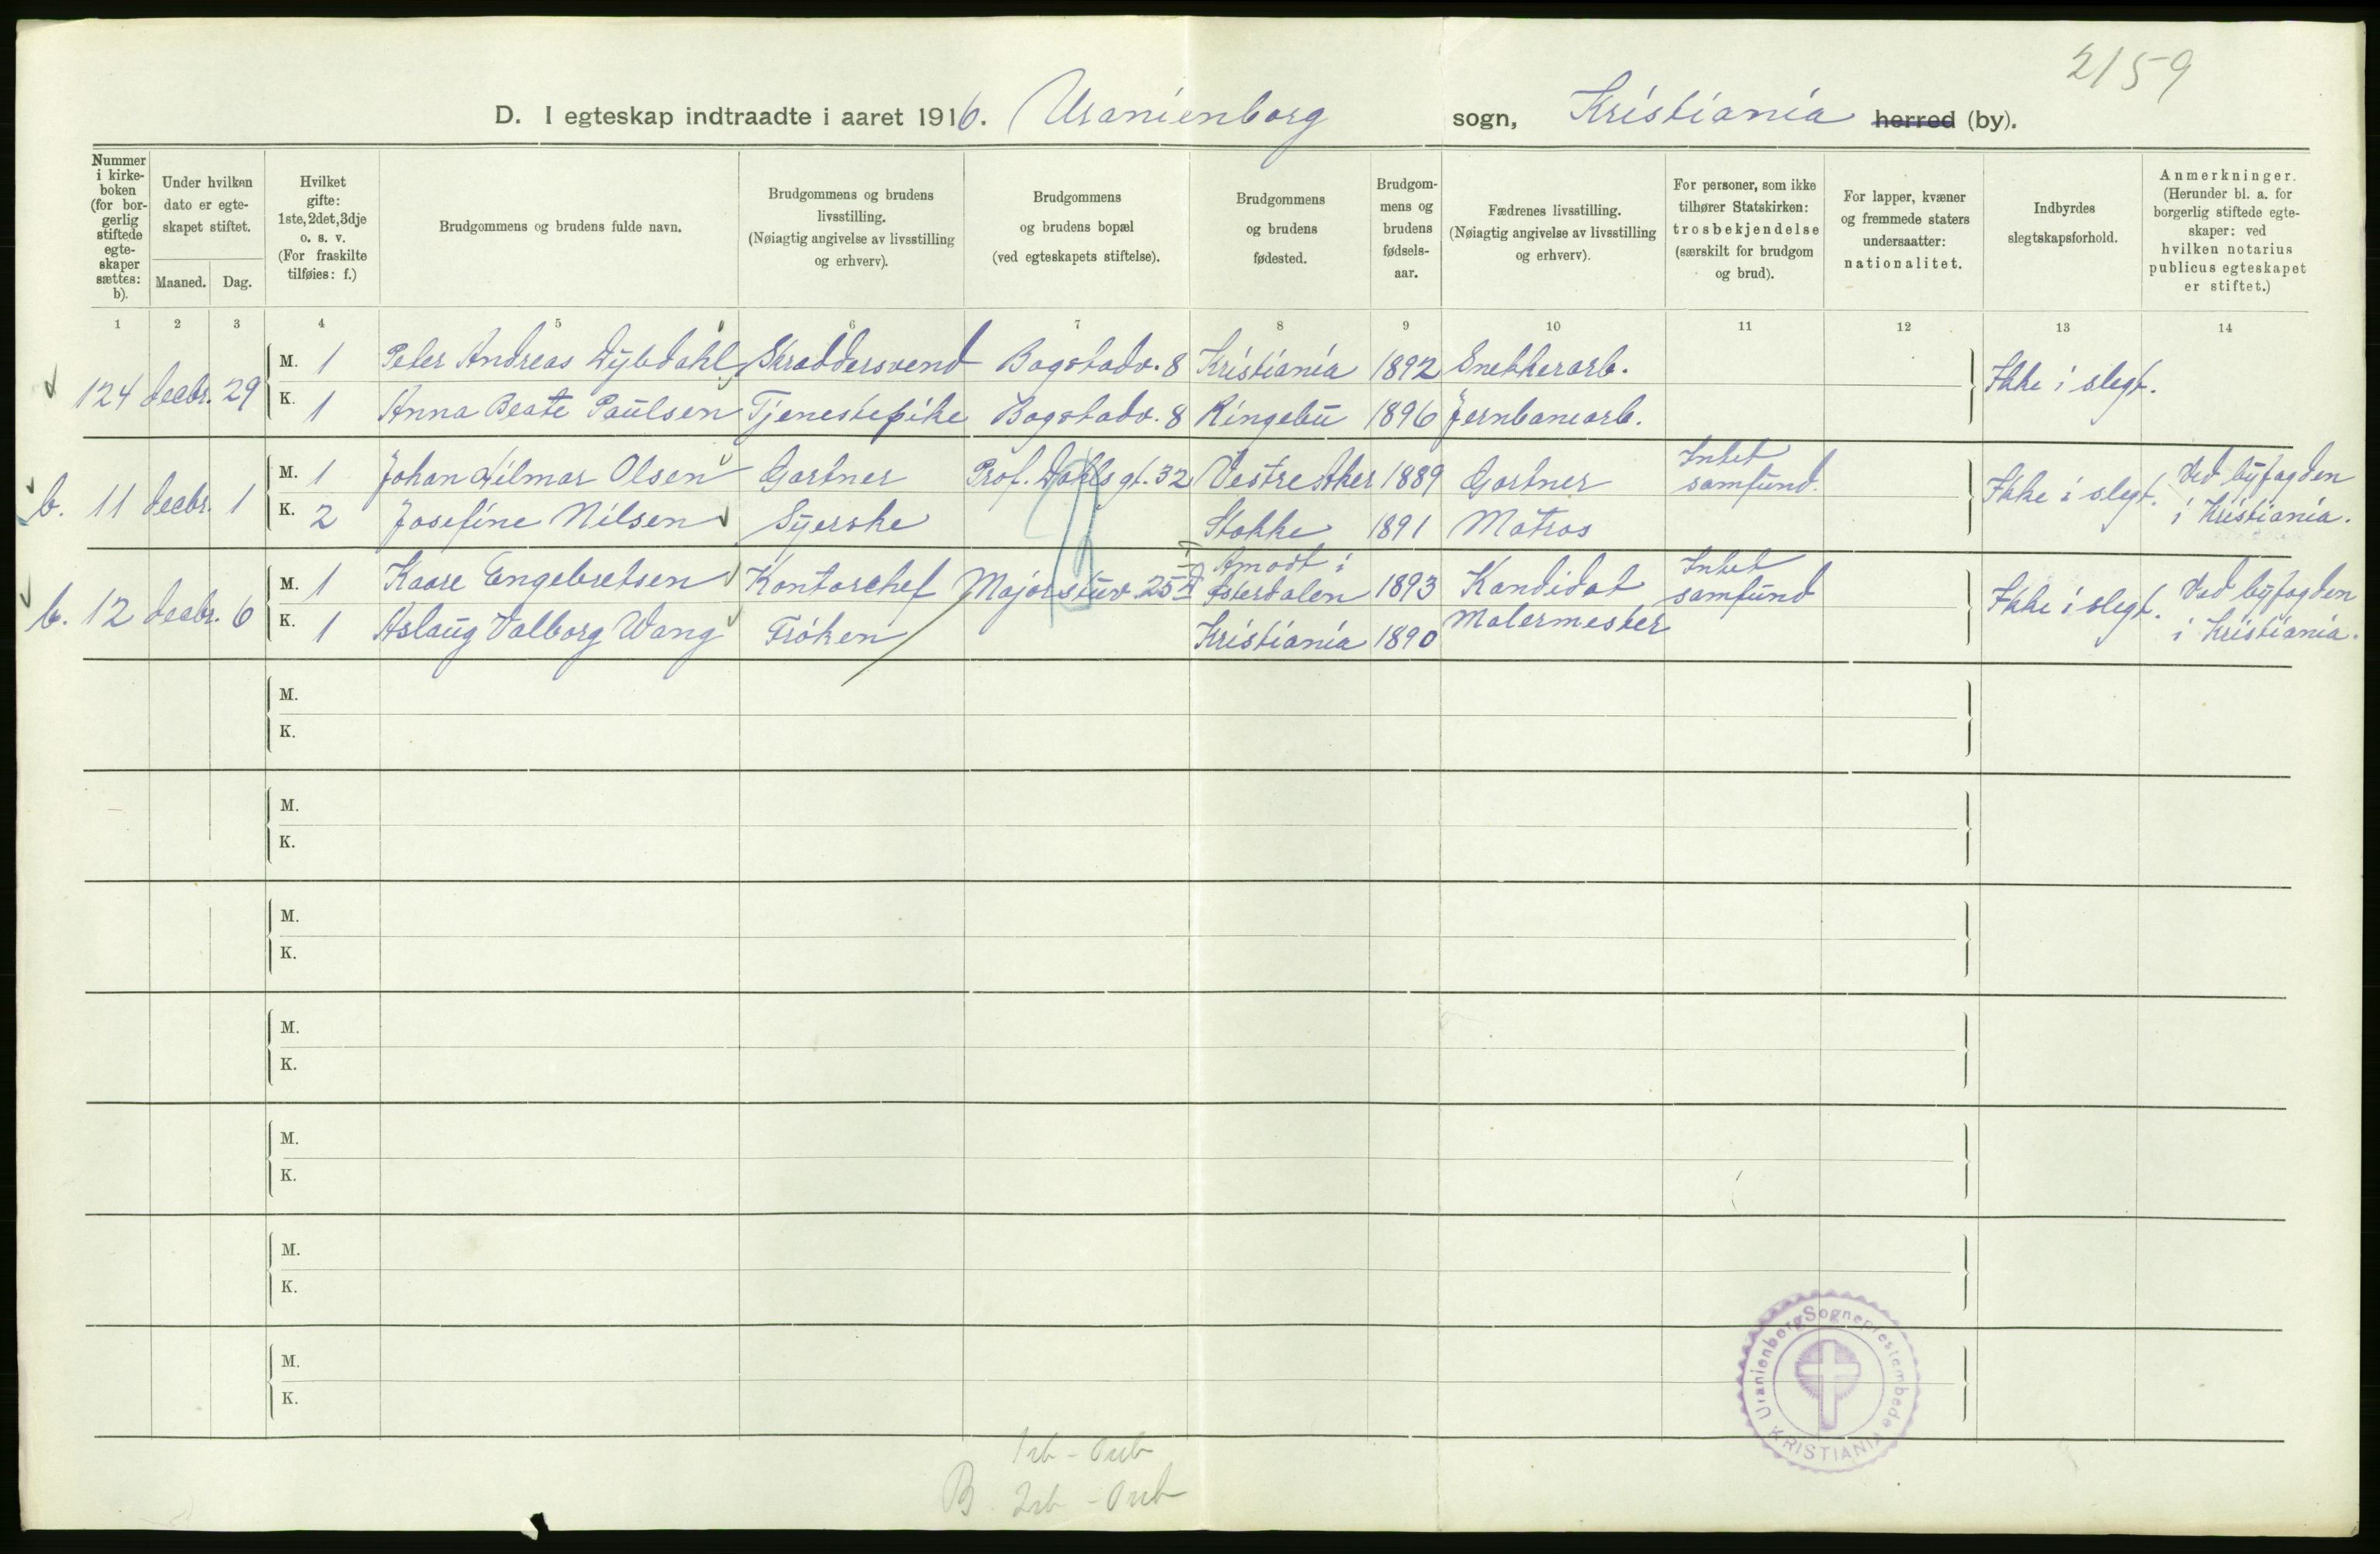 2159
D. I egteskap indtraadte i aaret 1916. Uranienborg sogn, Kristiania herred (by).
Nummer i kirke-boken (for bor-gerlig stiftede egte-skaper sættes: b).
Under hvilken dato er egte-skapet stiftet.
Maaned. Dag.
Hvilket gifte: 1ste, 2det, 3dje o. s. v. (For fraskilte tilføies: f.)
Brudgommens og brudens fulde navn.
Brudgommens og brudens livsstilling. (Nøiagtig angivelse av livsstilling og erhverv).
Brudgommens og brudens bopæl (ved egteskapets stiftelse).
Brudgommens og brudens fødested.
Brudgom-mens og brudens fødsels-aar.
Fædrenes livsstilling. (Nøiagtig angivelse av livsstilling og erhverv).
For personer, som ikke tilhører Statskirken: trosbekjendelse (særskilt for brudgom og brud).
For lapper, kvæner og fremmede staters undersaatter: nationalitet.
Indbyrdes slegtskapsforhold.
Anmerkninger. (Herunder bl. a. for borgerlig stiftede egte-skaper: ved hvilken notarius publicus egteskapet er stiftet.)
1 2 3 4 5 6 7 8 9 10 11 12 13 14
124 decbr. 29 M. 1 Peter Andreas Dybdahl Skræddersvend Bogstadv. 8 Kristiania 1892 Snekkerarb. Ikke i slegt.
K. 1 Anna Beate Paulsen Tjenestepike Bogstadv. 8 Ringebu 1896 Jernbanearb.
b. 11 decbr. 1 M. 1 Johan Hilmar Olsen Gartner Prof. Dahls gt. 32 Vestre Aker 1889 Gartner Intet samfund. Ikke i slegt. Ved byfogden i Kristiania.
K. 2 Josefine Nilsen Syerske Stokke 1891 Matros
b. 12 decbr. 6 M. 1 Kaare Engebretsen Kontorchef Majorstuv. 25 Amodt i Østerdalen 1893 Kandidat Intet samfund Ikke i slegt. Ved byfogden i Kristiania.
K. 1 Aslaug Valborg Wang Frøken Kristiania 1890 Malermester
M.
K.
M.
K.
M.
K.
M.
K.
M.
K.
M.
K.
M.
K.
Uranienborg Sogneprestembede KRISTIANIA